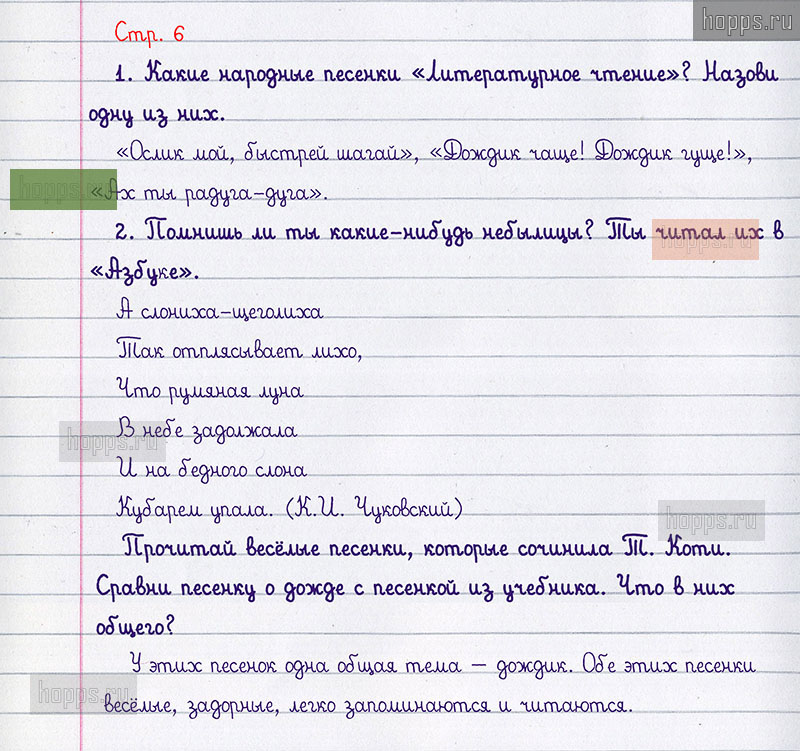 hopps.ru
Стр. 6
1. Какие народные песенки «Литературное чтение»? Назови
одну из них.
«Ослик мой, быстрей шагай», «Дождик чаще! Дождик гуще!»,
hopps.ru
«Ах ты радуга-дуга».
2. Помнишь ли ты какие-нибудь небылицы? Ты читал их в
hopps.ru
«Азбуке».
А слониха-щеголиха
Так отплясывает лихо,
Что румяная луна
В небе задолжала
hopps.ru
И на бедного слона
Кубарем упала. (К.И. Чуковский)
hopps.ru
Прочитай весёлые песенки, которые сочинила Т. Коти.
Сравни песенку о дожде с песенкой из учебника. Что в них
общего?
У этих песенок одна общая тема – дождик. Обе этих песенки
hopps.ru
весёлые, задорные, легко запоминаются и читаются.